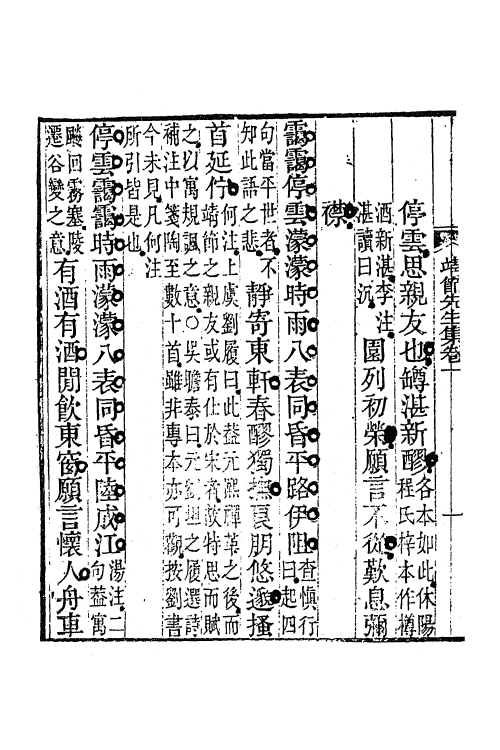 靖節先生集卷一
停雲思親友也罇湛新醪各本如此休陽程氏梓本作樽
酒新湛李注湛讀曰沉園列初榮願言不從歎息彌
襟
靄靄停雲濛濛時雨八表同昏平路伊阻查慎行曰起四
句當平世者不知此語之悲靜寄東軒春醪獨撫良朋悠邈搔
首延佇何注上虞劉履曰此蓋元熙禪革之後而靖節之親友或有仕於宋者故特思而賦
之以寓規諷之意〇吳瞻泰曰元劉坦之履選詩補注中箋陶至數十首雖非專本亦可觀按劉書
今未見凡何注所引皆是也
停雲靄靄時雨濛濛八表同昏平陸成江湯注二句蓋寓
飈回霧塞陵遷谷變之意有酒有酒閒飲東窗願言懷人舟車